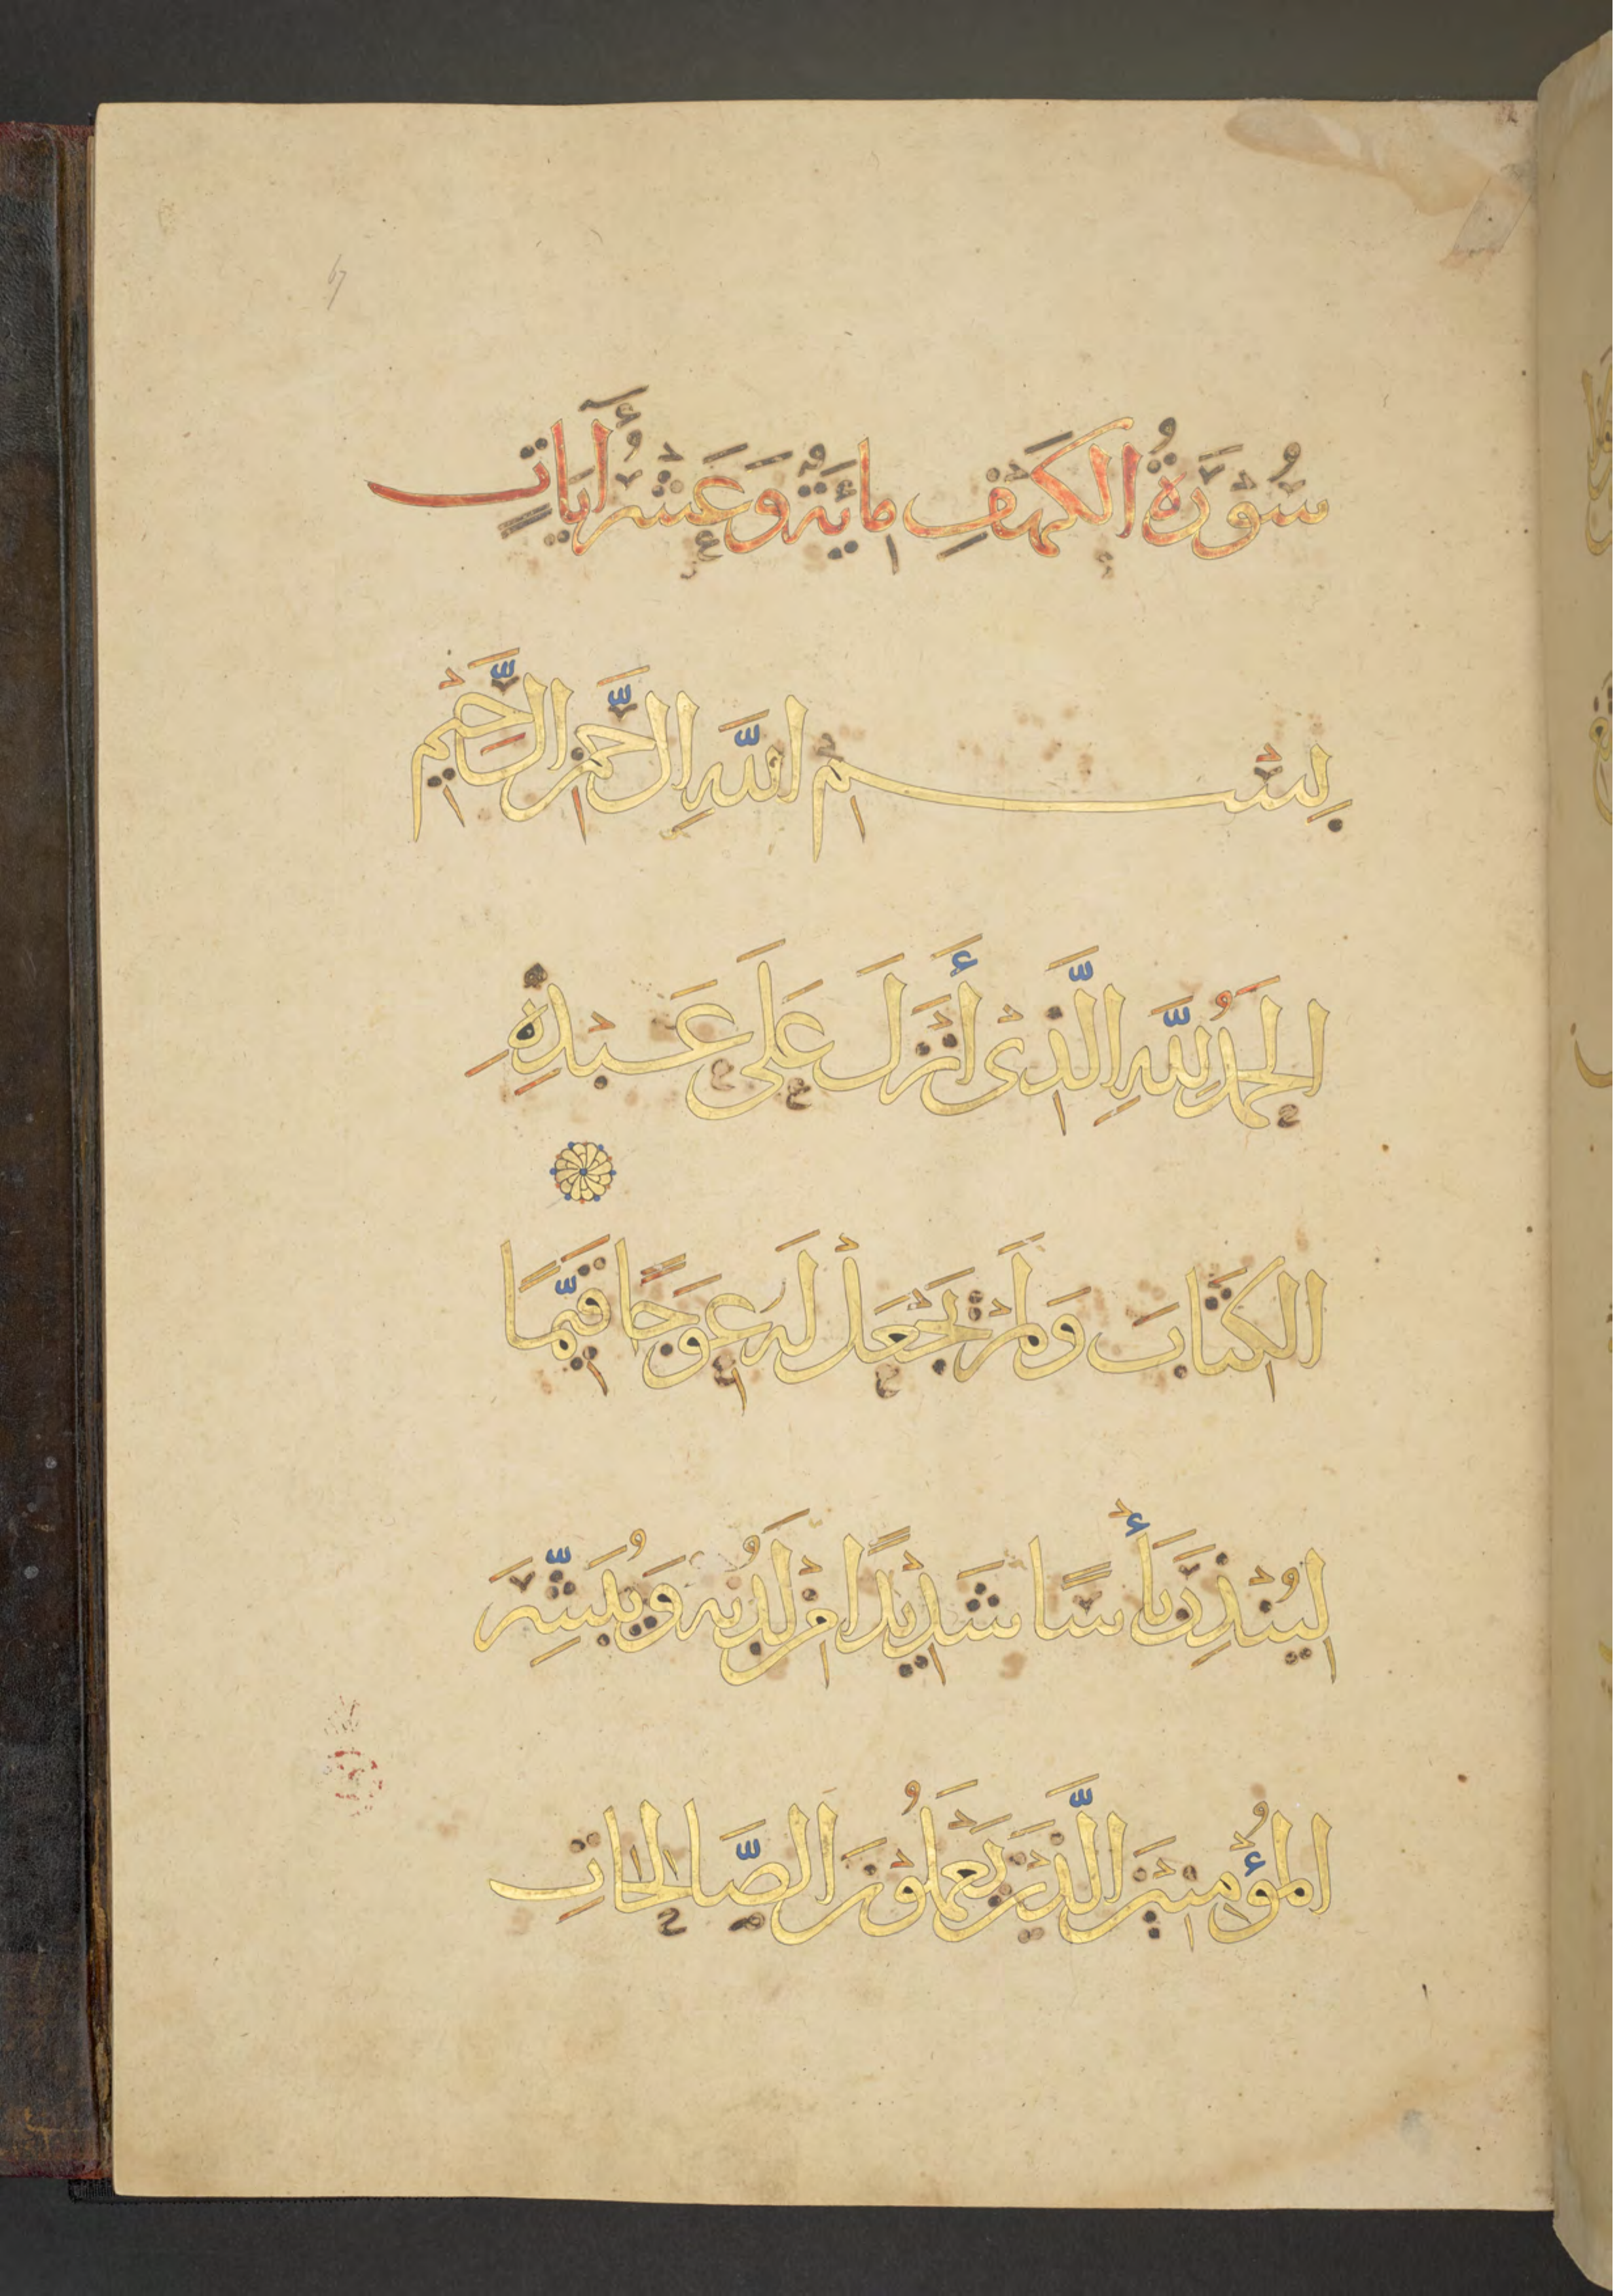 سُوْرَةُ الْكَهْفِ مِائَةٌ وَعَشْرُ آيَاتٍ
بِسْمِ اللَّهِ الرَّحْمٰنِ الرَّحِيْمِ
الْحَمْدُ لِلَّهِ الَّذِىْ أَنْزَلَ عَلَى عَبْدِهِ
الْكِتَابَ وَلَمْ يَجْعَلْ لَهُ عِوَجًا قَيِّمًا
لِيُنْذِرَ بَأْسًا شَدِيْدًا مِنْ لَدُنْهُ وَيُبَشِّرَ
الْمُؤْمِنِيْنَ الَّذِيْنَ يَعْمَلُوْنَ الصَّالِحَاتِ